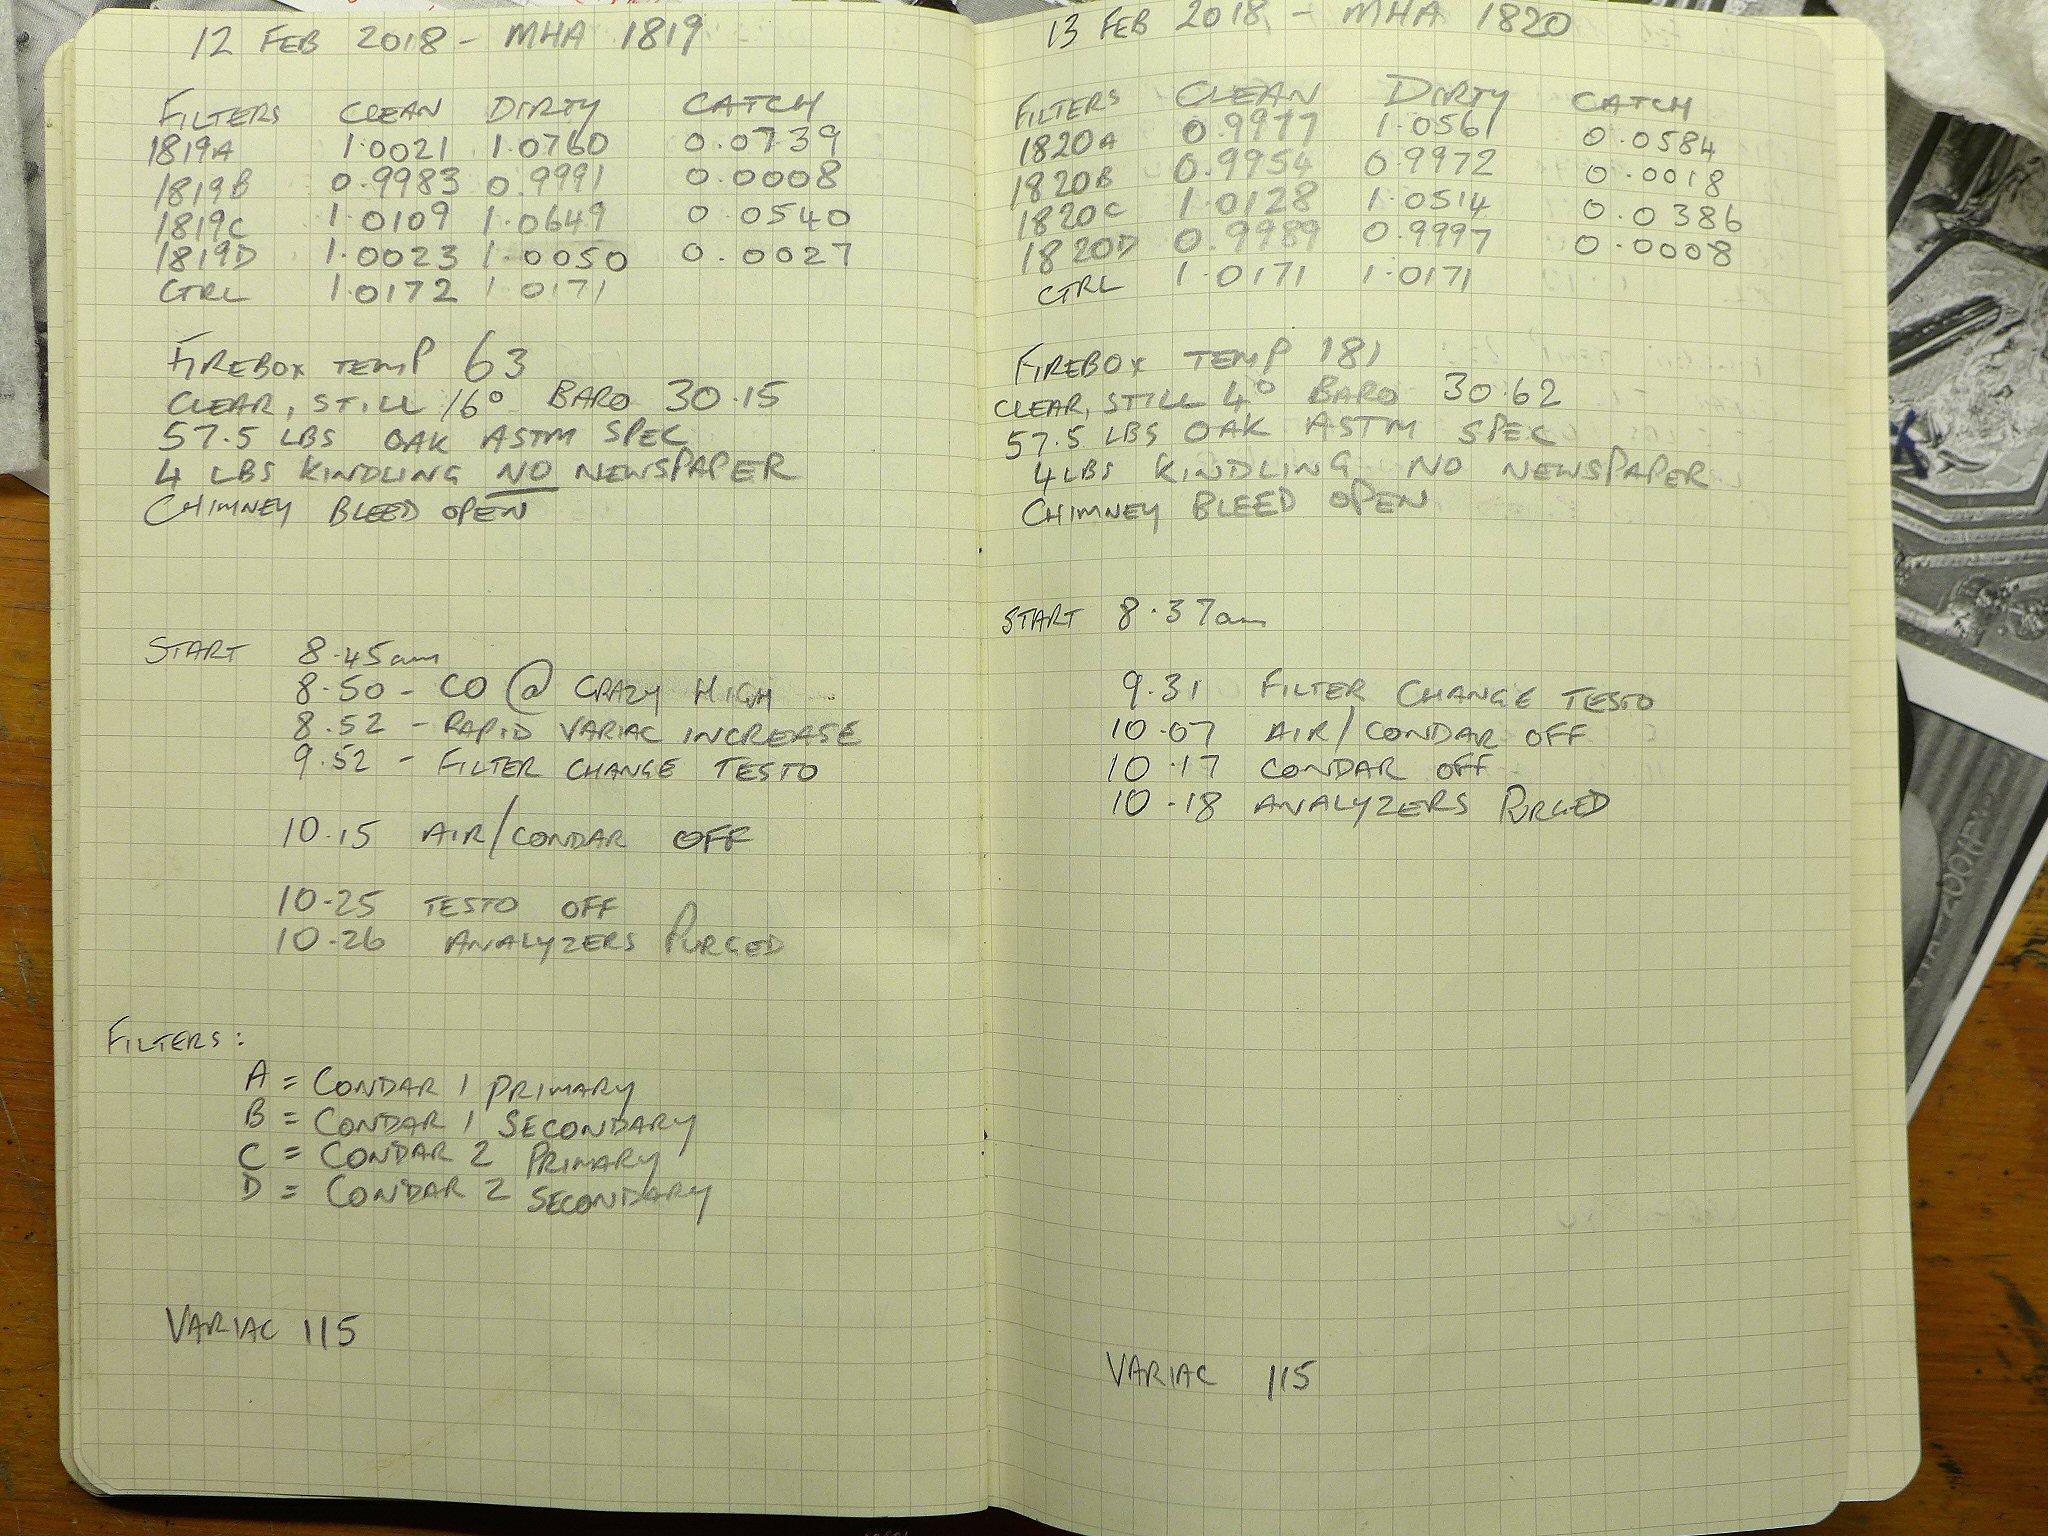 12 FEB 2018 - MHA 1819
FILTERS CLEAN DIRTY CATCH
1819A 1.0021 1.0760 0.0739
1819B 0.9983 0.9991 0.0008
1819C 1.0109 1.0649 0.0540
1819D 1.0023 1.0050 0.0027
CTRL 1.0172 1.0171
FIREBOX TEMP 63
CLEAR, STILL 16° BARO 30.15
57.5 LBS OAK ASTM SPEC
4 LBS KINDLING NO NEWSPAPER
CHIMNEY BLEED OPEN
START 8.45am
8.50 - CO @ CRAZY HIGH
8.52 - RAPID VARIAC INCREASE
9.52 - FILTER CHANGE TESTO
10.15 AIR/CONDAR OFF
10.25 TESTO OFF
10.26 ANALYZERS PURGED
FILTERS:
A = CONDAR 1 PRIMARY
B = CONDAR 1 SECONDARY
C = CONDAR 2 PRIMARY
D = CONDAR 2 SECONDARY
VARIAC 115
13 FEB 2018 - MHA 1820
FILTERS CLEAN DIRTY CATCH
1820A 0.9977 1.0561 0.0584
1820B 0.9954 0.9972 0.0018
1820C 1.0128 1.0514 0.0386
1820D 0.9989 0.9997 0.0008
CTRL 1.0171 1.0171
FIREBOX TEMP 181
CLEAR, STILL 4° BARO 30.62
57.5 LBS OAK ASTM SPEC
4 LBS KINDLING NO NEWSPAPER
CHIMNEY BLEED OPEN
START 8.37am
9.31 FILTER CHANGE TESTO
10.07 AIR/CONDAR OFF
10.17 CONDAR OFF
10.18 ANALYZERS PURGED
VARIAC 115